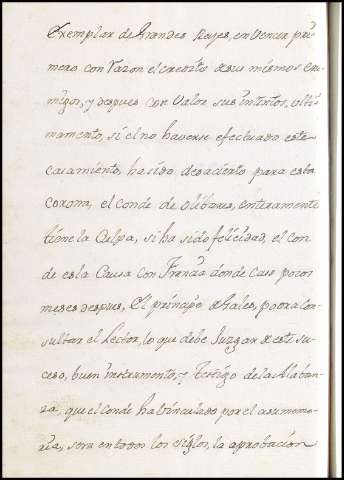 Exemplar de Grandes Reyes, en Vencer pri
mero con Razon el credito de sus mismos Ene
migos, y despues con Valor sus intentos, ulti
mamento, si el no haverse efectuado este
casamiento, ha sido desacierto para esta
corona, el conde de olibares, enteramente
tiene la Culpa, si ha sido felicidad, el con
de es la Causa con Francia donde caso pocos
meses despues, El principe de Gales, podra con
sultar el Lector, lo que debe Juzgar de este su
ceso, buen instrumento, y Testigo de la Alaban
za, que el conde ha binculado por el a su memo
ria, sera en todos los siglos, la aprobacion